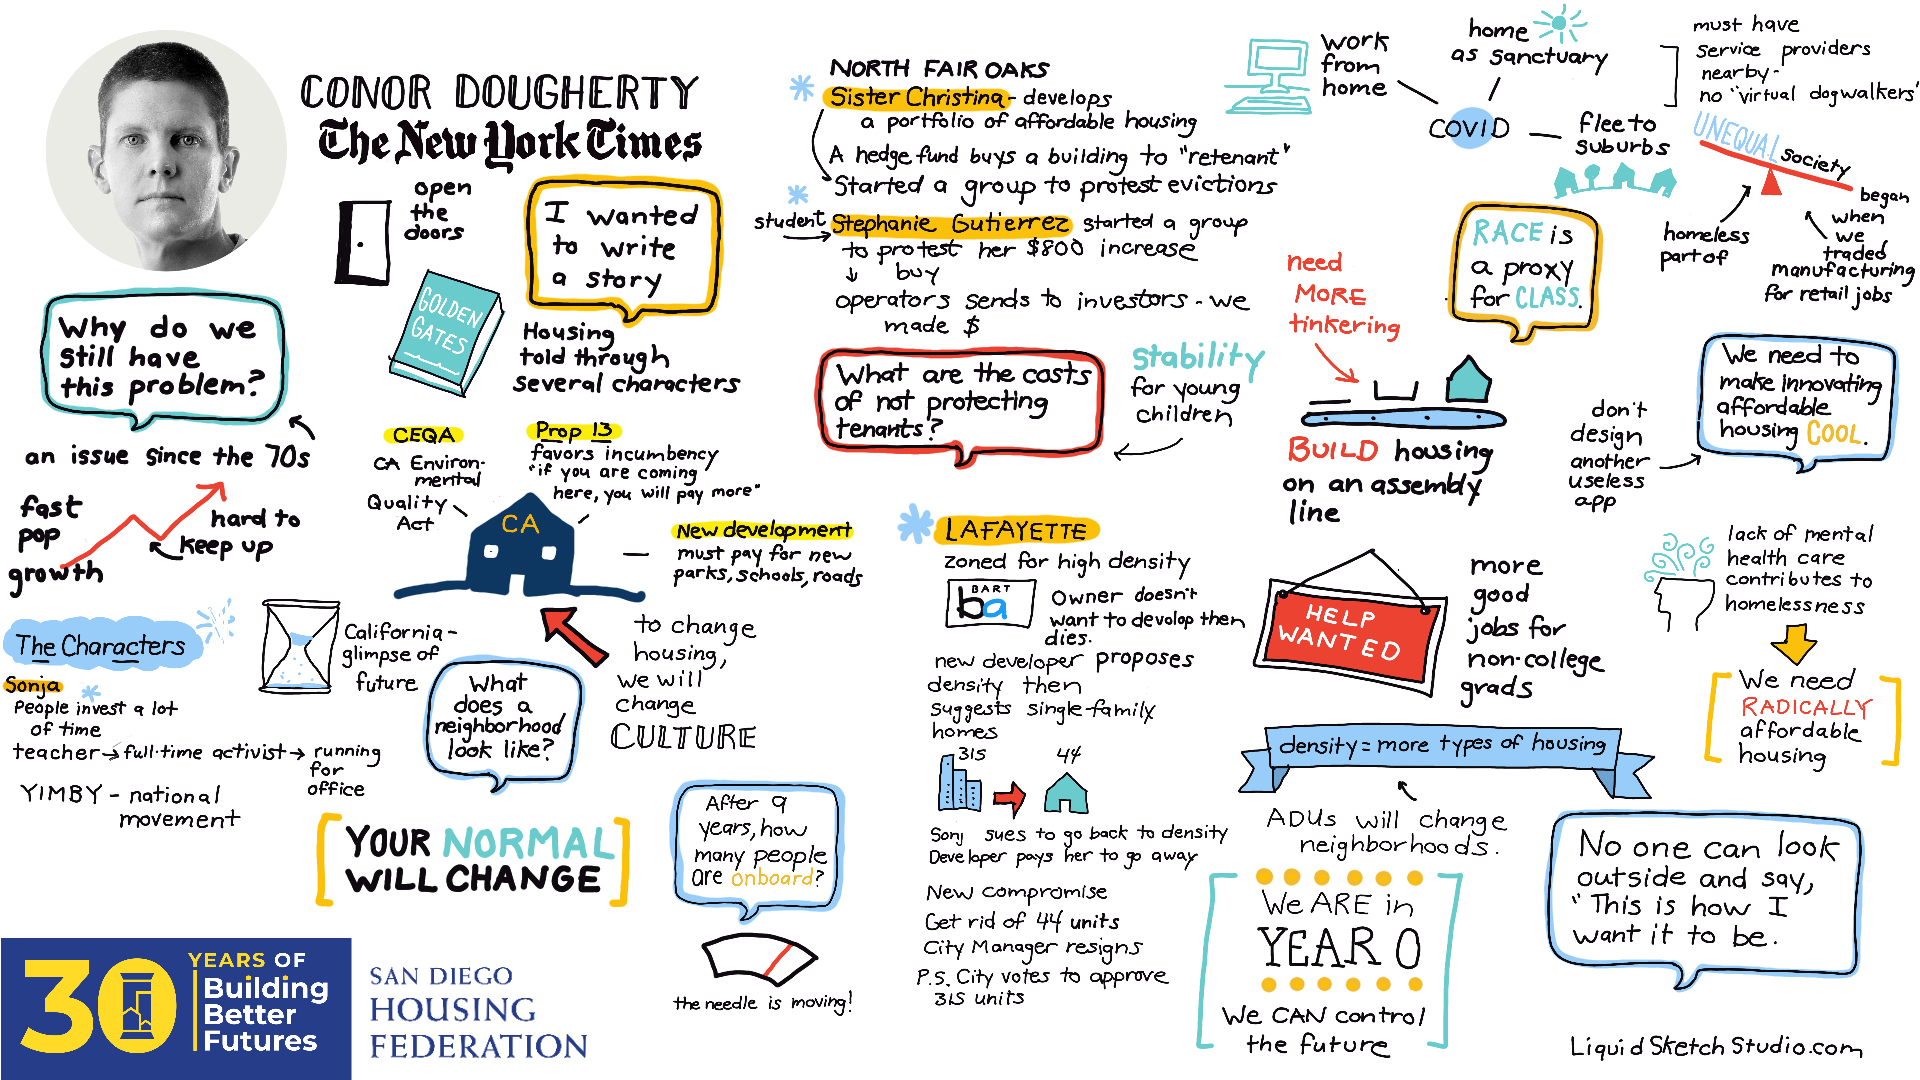 CONOR DOUGHERTY
The New York Times
open
the
doors
I wanted
to write
a story
GOLDEN
GATES
Housing
told through
several characters
Why do we
still have
this problem?
an issue since the 70s
fast
pop
growth
hard to
keep up
CEQA
CA Environ-
mental
Quality
Act
Prop 13
favors incumbency
"if you are coming
here, you will pay more"
CA
New development
must pay for new
parks, schools, roads
The Characters
Sonja
People invest a lot
of time
teacher → full-time activist → running
for
office
YIMBY - national
movement
California -
glimpse of
future
What
does a
neighborhood
look like?
to change
housing,
we will
change
CULTURE
YOUR NORMAL
WILL CHANGE
After 9
years, how
many people
are onboard?
the needle is moving!
30 YEARS OF
Building
Better
Futures
SAN DIEGO
HOUSING
FEDERATION
NORTH FAIR OAKS
Sister Christina - develops
a portfolio of affordable housing
A hedge fund buys a building to "retenant"
Started a group to protest evictions
student
Stephanie Gutierrez started a group
to protest her $800 increase
buy
operators sends to investors - we
made $
What are the costs
of not protecting
tenants?
stability
for young
children
LAFAYETTE
zoned for high density
BART
ba
Owner doesn't
want to develop then
dies.
new developer proposes
density then
suggests single-family
homes
315
44
Sonj sues to go back to density
Developer pays her to go away
New compromise
Get rid of 44 units
City Manager resigns
P.S. City votes to approve
315 units
work
from
home
home
as sanctuary
COVID
flee to
suburbs
must have
service providers
nearby -
no "virtual dogwalkers"
UNEQUAL society
homeless
part of
began
when
we
traded
manufacturing
for retail jobs
RACE is
a proxy
for CLASS.
need
MORE
tinkering
BUILD housing
on an assembly
line
We need to
make innovating
affordable
housing COOL.
don't
design
another
useless
app
HELP
WANTED
more
good
jobs for
non-college
grads
lack of mental
health care
contributes to
homelessness
We need
RADICALLY
affordable
housing
density = more types of housing
ADUs will change
neighborhoods.
We ARE in
YEAR 0
We CAN control
the future
No one can look
outside and say,
"This is how I
want it to be.
LiquidSketchStudio.com